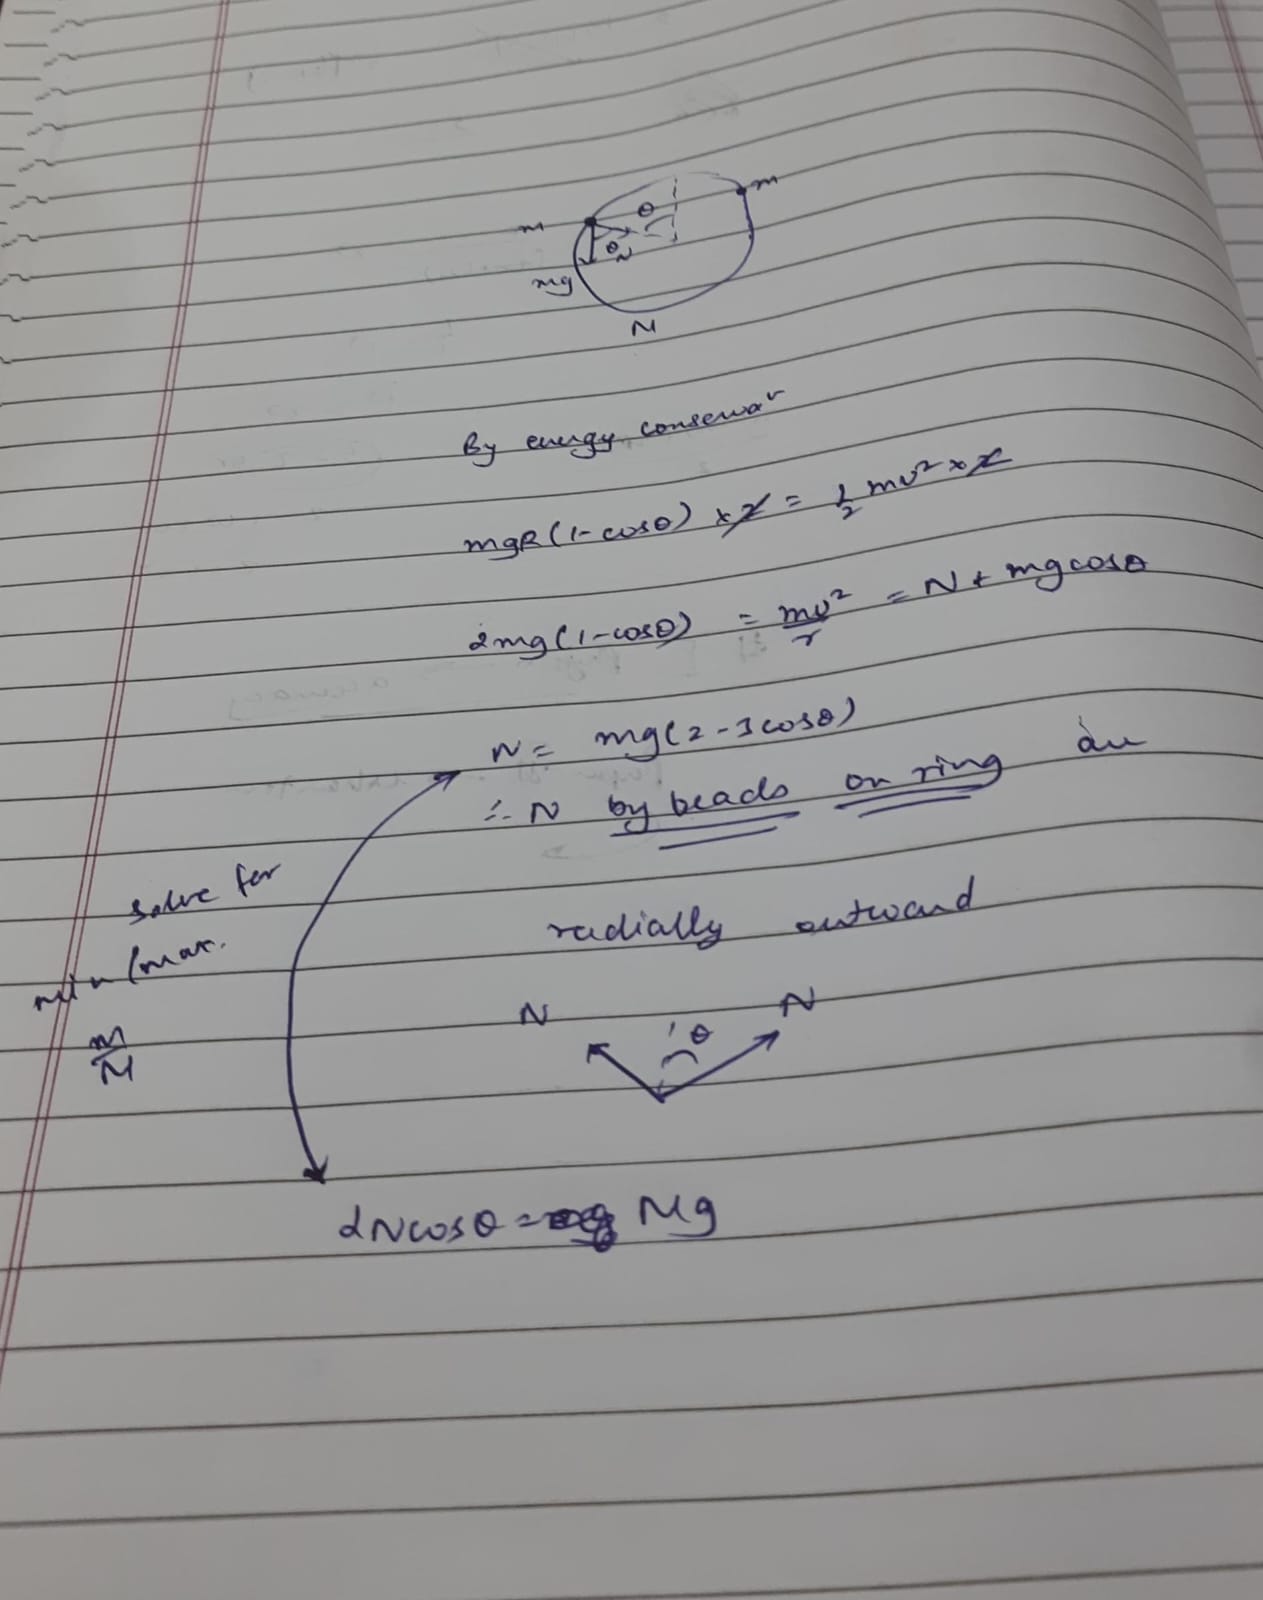 m
θ
m
θ
N
mg
M
By energy conservaⁿ
mgR(1-cosθ) x2 = 1/2 mv² x2
2mg(1-cosθ) = mv²/r = N + mgcosθ
N = mg(2-3cosθ)
∴ N by beads on ring
radially outward
solve for
min/max.
m/M
N
θ
N
2Ncosθ = Mg